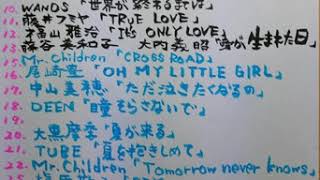 10. WANDS「世界が終るまでは」
11. 藤井フミヤ「TRUE LOVE」
12. 福山雅治「IT'S ONLY LOVE」
13. 藤谷美和子 大内義昭「愛が生まれた日」
15. Mr. Children「CROSS ROAD」
16. 尾崎豊「OH MY LITTLE GIRL」
17. 中山美穂「ただ泣きたくなるの」
18. DEEN「瞳そらさないで」
19.
20. 大黒摩季「夏が来る」
21. TUBE「夏を抱きしめて」
22. Mr. Children「Tomorrow never knows」